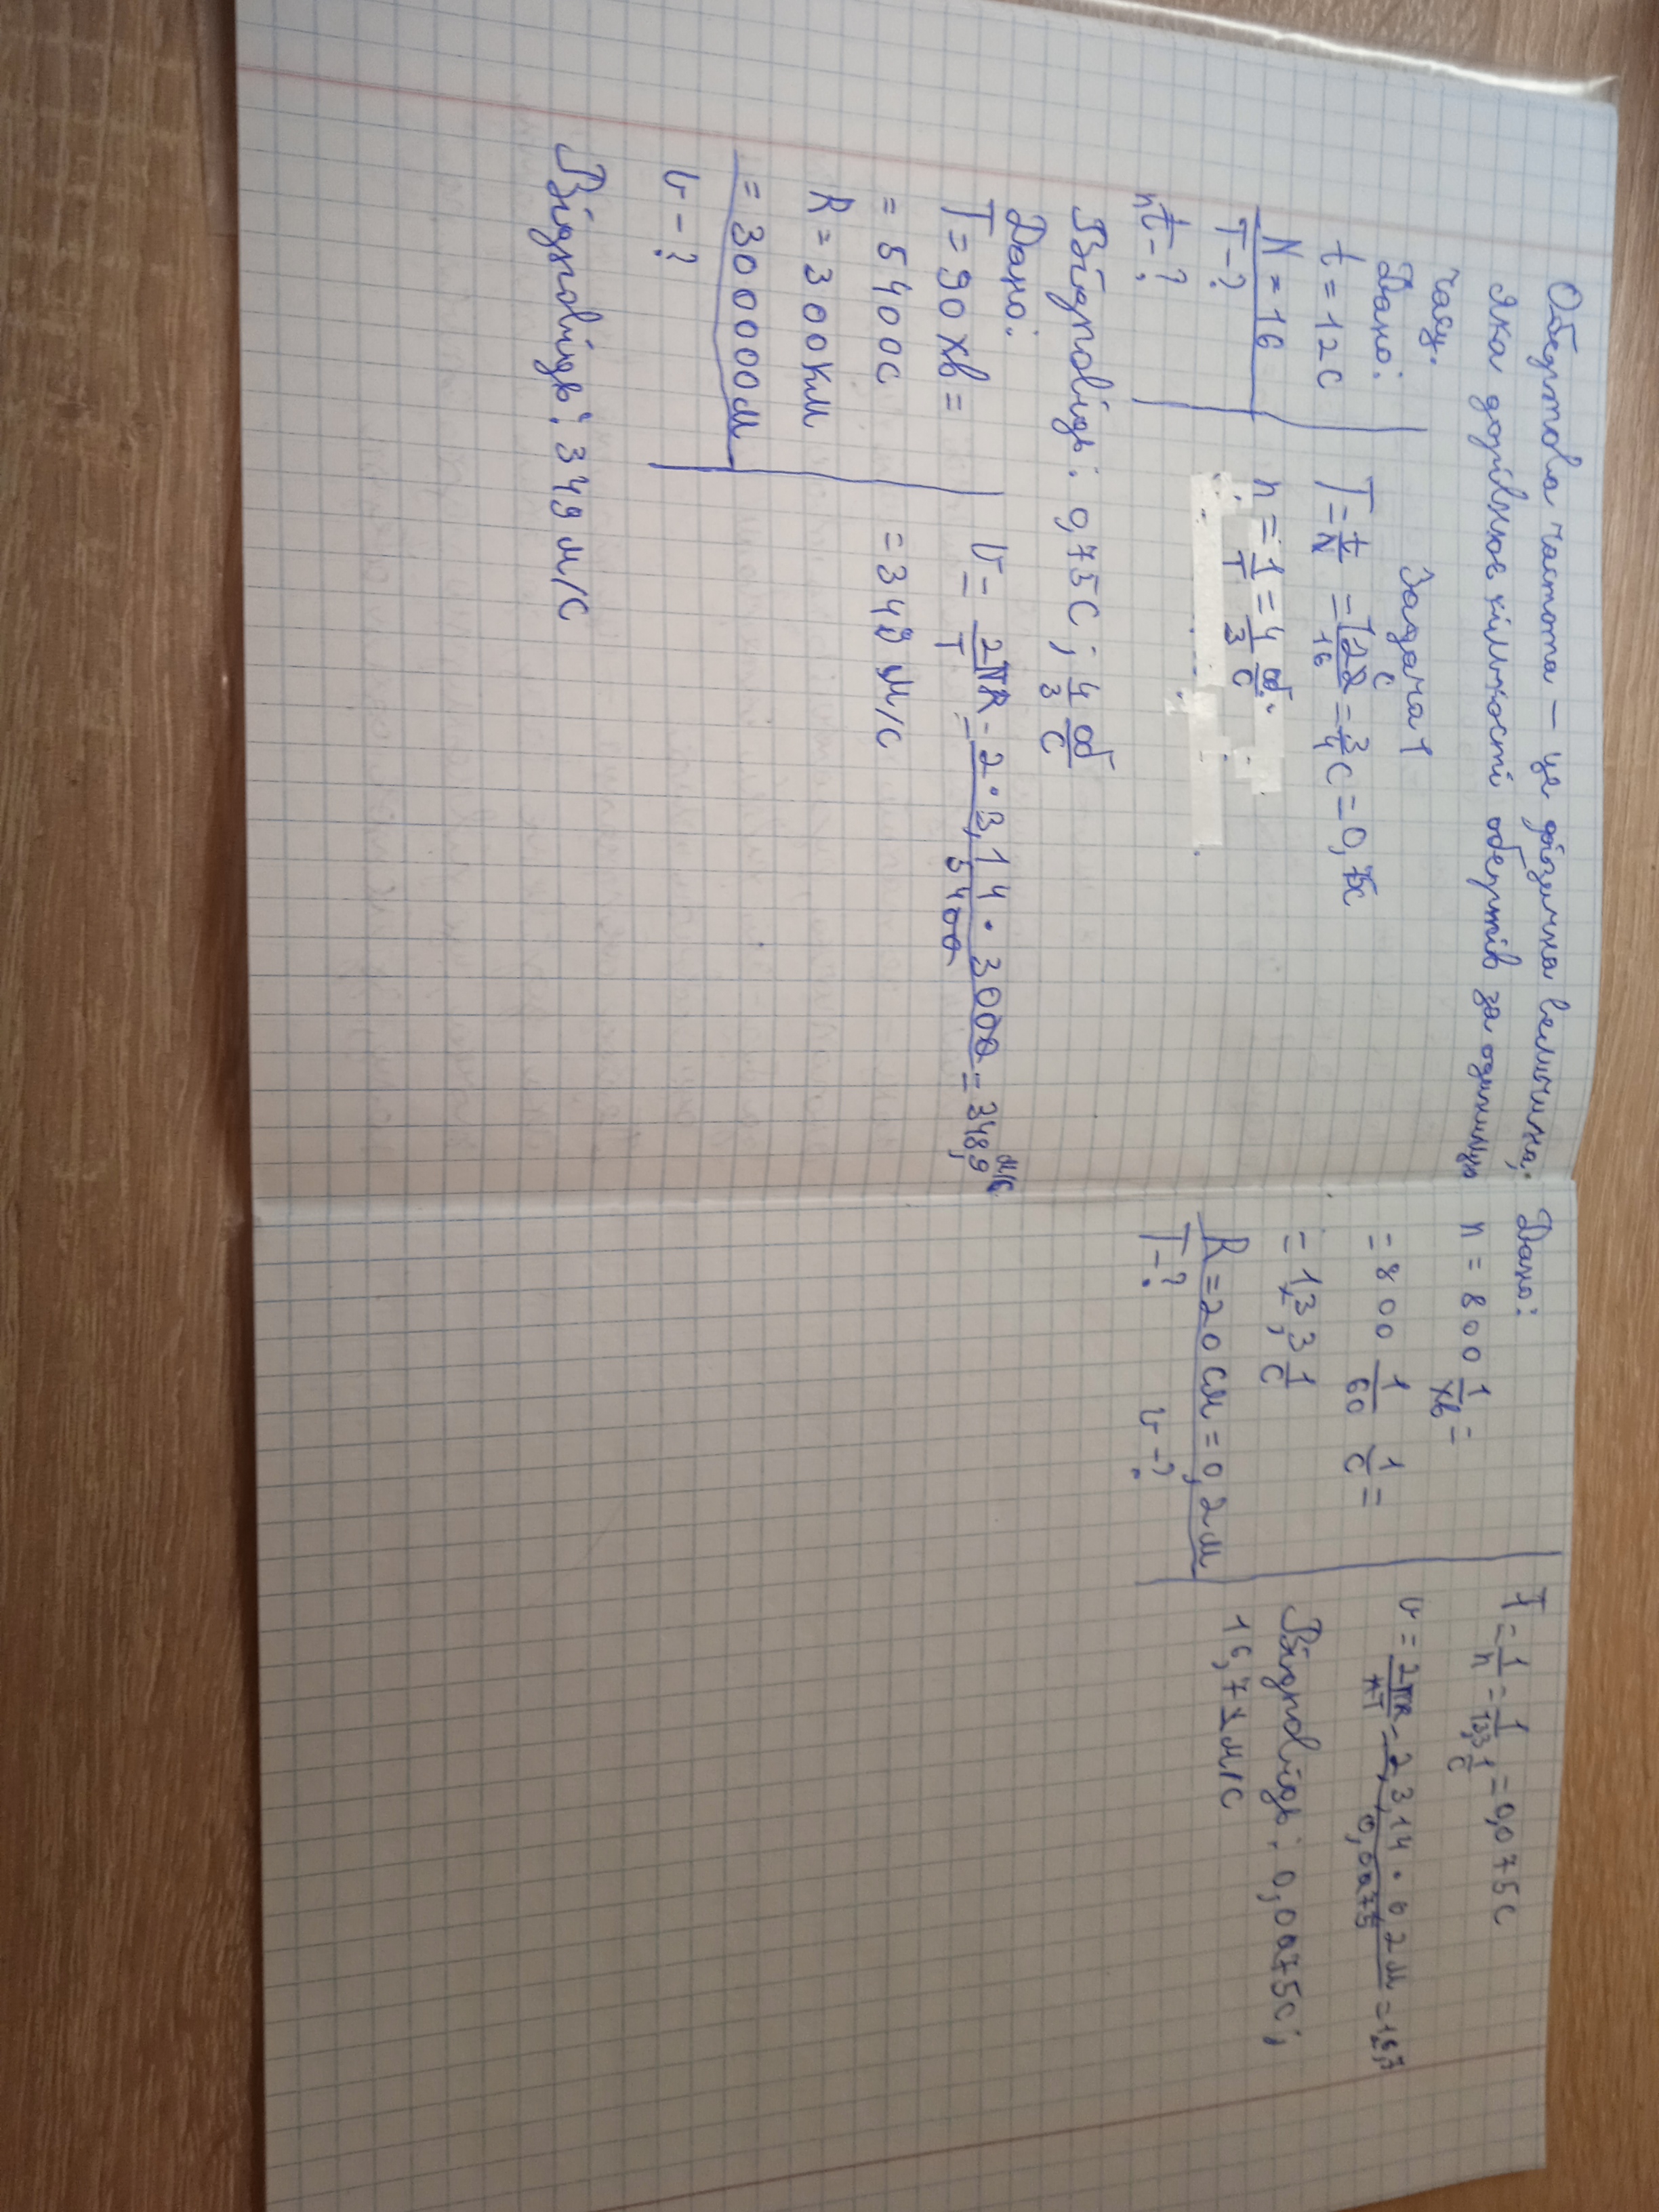 Обертова частота — це фізична величина,
яка дорівнює кількості обертів за одиницю
часу.
Задача 1
Дано:
t = 12 с
N = 16
T - ?
n - ?
T = t/N = 12 с/16 = 3/4 с = 0,75с
n = 1/T = 4/3 об/с
Відповідь: 0,75с; 4/3 об/с
Дано:
T = 90 хв =
= 5400с
R = 300км
= 300000м
v - ?
v = 2πR/T = 2·3,14·3000/5400 = 348,9 м/с
= 349 м/с
Відповідь: 349 м/с
Дано:
n = 800 1/хв =
= 800 1/60 1/с =
= 13,3 1/с
R = 20 см = 0,2м
T - ? v - ?
T = 1/n = 1/13,3 1/с = 0,075с
v = 2πR/T = 2·3,14·0,2м/0,075 = 16,7
Відповідь: 0,075с;
16,7 м/с